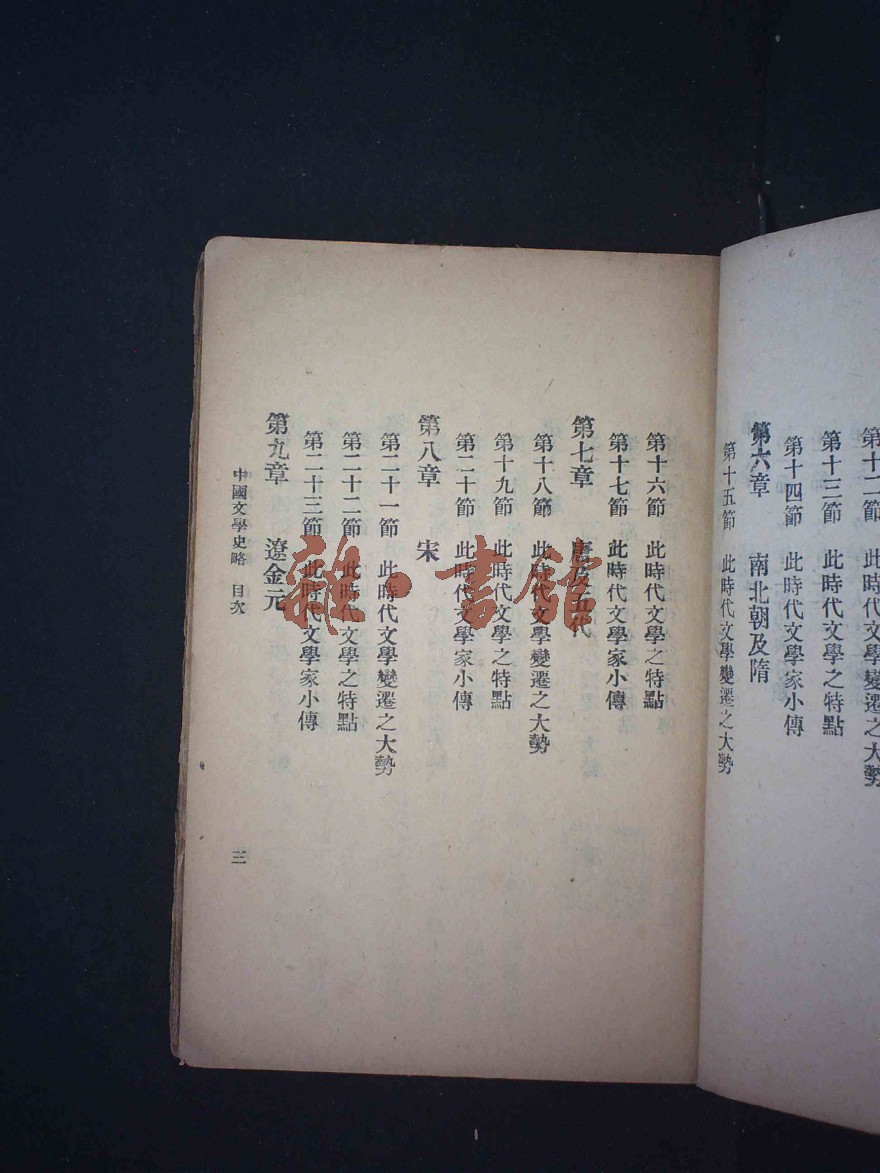 第十二節 此時代文學變遷之大勢
第十三節 此時代文學之特點
第十四節 此時代文學家小傳
第六章 南北朝及隋
第十五節 此時代文學變遷之大勢
第十六節 此時代文學之特點
第十七節 此時代文學家小傳
第七章 唐及五代
第十八節 此時代文學變遷之大勢
第十九節 此時代文學之特點
第二十節 此時代文學家小傳
第八章 宋
第二十一節 此時代文學變遷之大勢
第二十二節 此時代文學之特點
第二十三節 此時代文學家小傳
第九章 遼金元
中國文學史略 目次
三
雜·書館